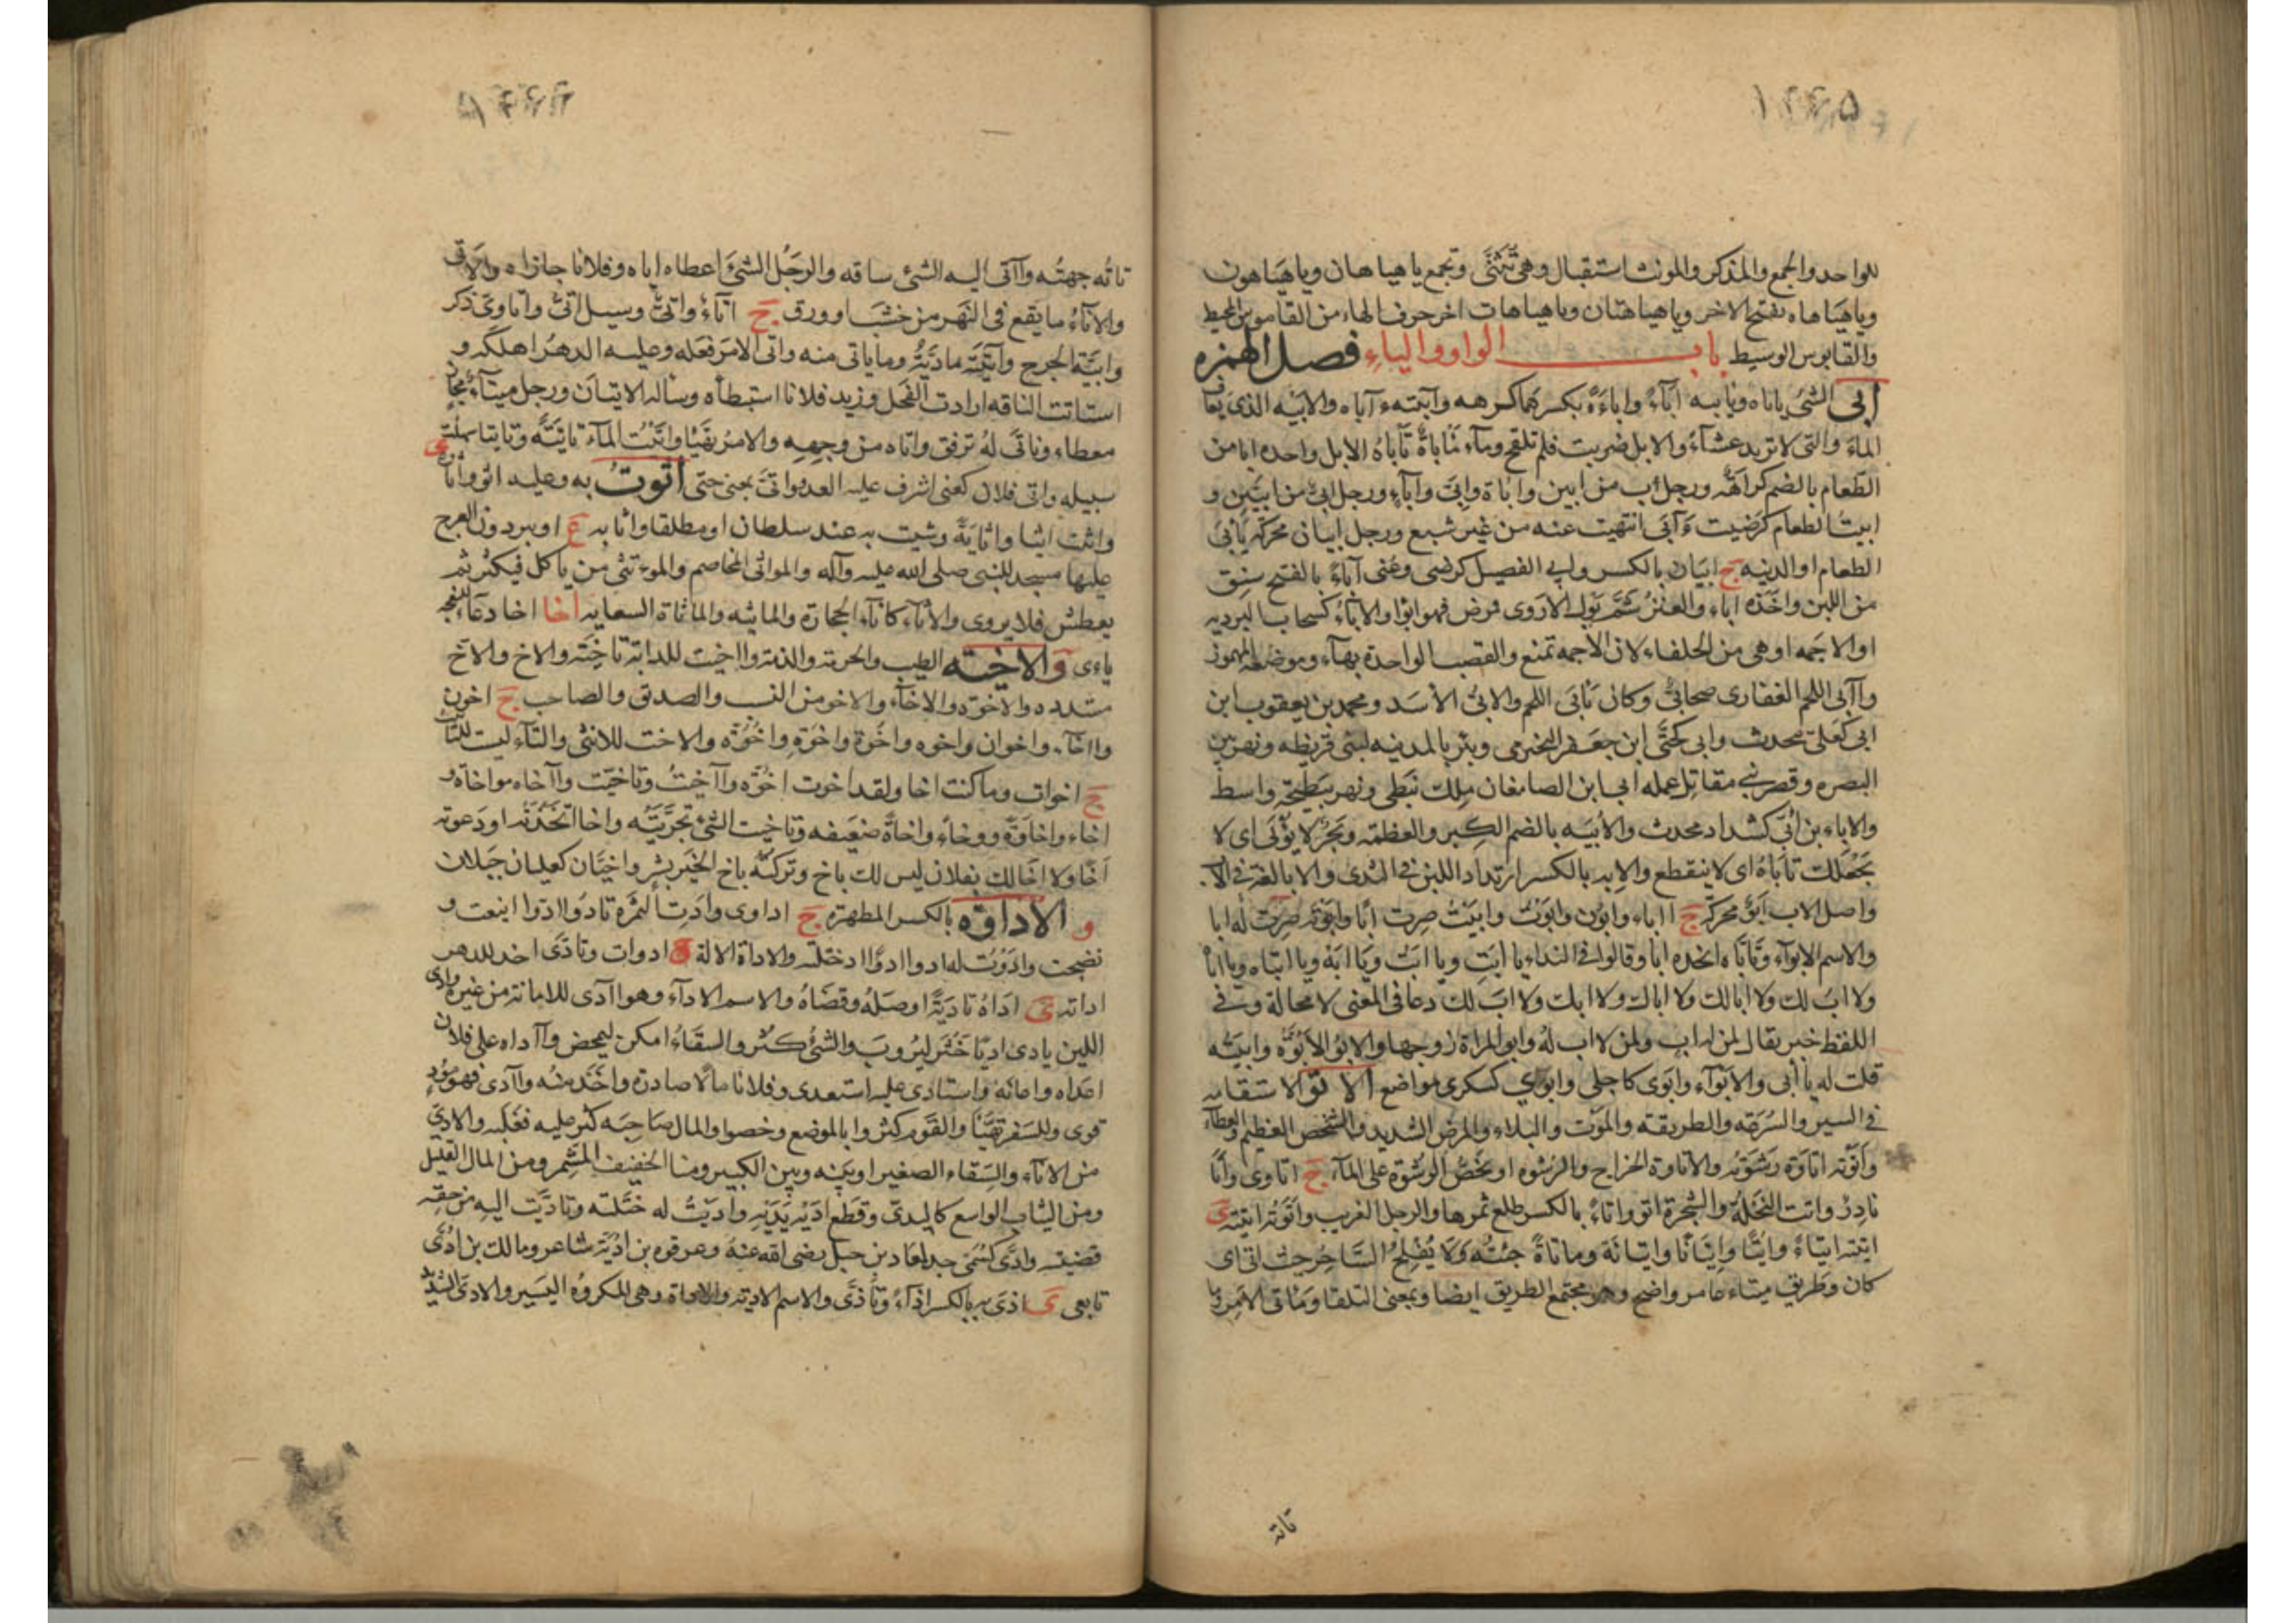 ١٢٢٥
للواحد والجمع والمذكر والمونث استقبال وهى تثنّى وتجمع ياهياهان وياهيَاهون
وياهيَاهاه بفتح الاخر وياهياهتان وياهياهات اخر حرف الهاء من القاموس المحيط
والقابوس الوسيط باب الواو والياءِ فصل الهمزه
أبى الشئ ياباه ويابيه اباءً واباءَةً بكسرهما كرهه وآبيته ءآباه والابيه الذى يعاف
الماءَ والتى لا تريد عشآءً والابل ضربت فلم تلقح ومآء مَاباةٌ تَاباهُ الابل واخذه ابا من
الطّعام بالضم كراهَةٌ ورجل اب من ابين واباة وابى وآباءٍ ورجل ابىٌ من ابيّين و
ابيتُ الطعام كرَضيت ءَابَى انتهيت عنه من غير شبع ورجل ابيان محركه يَأبى
الطعام او الدنيه ج ابيَان بالكسر وابى الفصيل كرضى وعُنى آباءً بالفتح سنق
من اللبن واخَذه اباء والعنز شَمّ بَول الاروى فمرض فهو ابوا والاباءُ كسحاب البرديه
او الاجَمه او هى من الحلفاء لان الاجمه تمنع والقصب الواحدة بهآء وموضعه المهموز
واآبى اللحم الغفارى صحابىٌّ وكان يَابَى اللحم والابىُّ الأسَد ومحمد بن يعقوب ابن
ابى كعَلىّ محدث وابى كحَتّى ابن جعفر النجيرمى وبئر بالمدينه لبنى قريظه ونهر بين
البصره وقصر بنى مقاتل عمله ابى ابن الصامغان ملك نبَطى ونهر ببَطيحة واسط
والاباء بن اُبَىّ كشداد محدث والاُبيَه بالضم الكِبر والعظمه وبَحرٌ لا يُؤبَى اى لا
يَجعَلك تابَاهُ اى لا ينقطع والابيه بالكسر ارتداد اللبن فى الثدى والابا لغة فى الاب
واصل الاب ابَوٌ محركة ج ااباء وابون وابَوتَ وابيَت صِرت ابًا وابَوته صِرت له ابا
والاسم الابوآء وتَاَبّاه اتخذه ابًا وقالوا فى النداء يا ابَتِ ويا ابَتَ ويَا ابَهْ ويا ابتاه ويا اباهْ
ولا ابَ لك ولا ابا لك ولا اباك ولا ابك ولا ابَ لك دعا فى المعنى لا محالة وفى
اللفظ خبر يقال لمن له اب ولمن لا اب لهُ وابو المراة زوجها والابو الاُبُوَّه وابيَتُه
قلت له يا ابى والابَوآء وابَوى كاجلى وابوى كسكرى مواضع الاتو الاستقامه
فى السير والسُرعَه والطريقه والموَت والبلاء والمرض الشديد والشخص العظيم والعطآء
واَتَوته اتاوَة رشَوتُه والاتاوة الخراج والرشوه او تخصُّ الرشوَة على المآء ج اتاوى واُتًا
نادِرٌ واتت النخلة والشجرة اتو واتاءً بالكسر طلع ثمرها والرجل الغريب واَتَوتُه اتيته ى
اتيته اتياً واتيًا واِتيَانًا واتيانَة وماتاةً جئتُه وَلَا يُفْلِحُ السَّاحِر حيث اتى اى
كان وطريق ميتاء عامر واضح وهو مجتمع الطريق ايضا وبمعنى التلقا وماتى الامر
تاته
تاتُه جهتُه واآتى اليه الشئ ساقه والرجُل الشئَ اعطاه اياه وفلانا جازاه والاتى
والاتآءُ ما يقع فى النَهر من خشَب او ورق ج اتآءُ واتىٌّ وسيل اتىٌّ واتاوى ذكر
وابيَّة الجرح وآتيَته مادَّيَتُهُ وما ياتى منه واتى الامرَ فعَله وعليه الدهرُ اهلكه و
استاتت الناقه ارادت الفحل وزيد فلانا استبطأه وساله الاتيان ورجل ميتآءٌ مجاز
معطاء وتاتّى لهُ ترفق واتاه من وجهه والامرُ تهيّا واتيتُ المآءَ تاتيَةً وتاتيا سهلتُ
سبيله واُتى فلان كعنى اشرف عليه العدو واتىَّ بمعنى حتى اَثَوتُ به وعليه اثو واثاوة
واثيت اثيا واثايةً وشيت به عند سلطان او مطلقا واثايه ع او بير دون العرج
عليها مسجد للنبى صلى الله عليه وآله والمواثى المخاصم والموءتثى من ياكل فيكثر ثم
يعطش فلا يروى والاثآء كاناء الحجارة والماثيه والماثاة السعايه أخا اخا دعاء للنعجه
ياءى والاخيّه الطنب والحرمه والذمه واخيت للدابّه تاخيَة والاخ والاخّ
مشدده والاخوّه والاخاءَ والاخو من النسب والصدق والصاحب ج اخون
وااخآء واخوان واخوه واخُوة واخُوّةٍ واخُوَّه والاخت للانثى والتاء ليست للتانيث
ج اخوات وما كنت اخا ولقد اخوت اخُوّه وآاخيتُ وتاخيّت وااخاه مواخاة و
اخاء واخاوَةً ووخاءً واخاةً ضعيفه وتاخيت الشئ تحرّيَتُه واخا اتخَذته او دَعوته
اَخًا ولا اخَا لك بفلان ليس لك باخ وتركته باخ الخيَر بشِرٍ واخيّان كعليان جبلان
و الادَاوَه بالكسر المطهره ج اداوى وادَتِ الثمرَة تادُو ادُوا اينعت و
نضجت وادَوتُ له ادوا ادوًا اختلته والاداة الالة ج ادوات وتادَى اخذ للدهر
اداته ى ادَّاهُ تاديَةً اوصَلهُ وقضَاهُ والاسم الادآء وهو ااَدى للامانة من غيره وادى
اللبن يادى اديًا خثُر ليُروبَ والشئُ كثُر والسقَاءُ امكن ليمخض وآاداه على فلان
اعَداه واعانه واستادى عليه استعدى وفلانا مالًا صادره واخَذ منه وآآدى فهو مُؤدٍ
قوى وللسَفر تهيَّأ والقَوم كثروا بالموضع وخصبوا والمال صَاحِبَه كثر عليه فغلبه والادىّ
من الاناء والسقاء الصغير او بينه وبين الكبير ومنا الخفيف المشمر ومن المال القليل
ومن الثياب الواسع كاليدىّ وقطع ادَيهُ يَدَيهِ وادَيتُ له ختَلته وتادّيَت اليه من حقِه
قضيته واُدَىّ كسُمَىّ جد لمعاذ بن جبل رضى الله عنهُ وعروه بن اديّة شاعر ومالك بن ادَّى
تابعى ى اذى به بالكسر اذآءً وتأذّى والاسم الاذيه والاذاة وهى المكروه اليسير والاذىّ الشديد